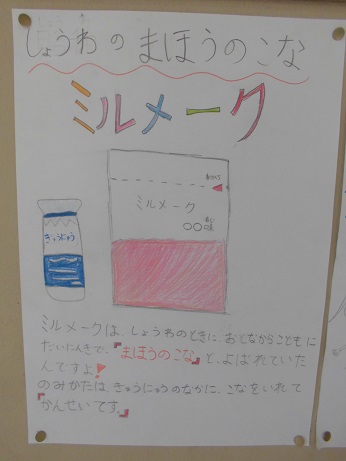 しょうわのまほうのこな
ミルメーク
ミルメーク
〇〇味
ぎゅうにゅう
ミルメークは、しょうわのときに、おとなからこどもに
だいにんきで、『まほうのこな』と、よばれていた
んですよ!
のみかたは、ぎゅうにゅうのなかに、こなをいれて
『かんせいです。』